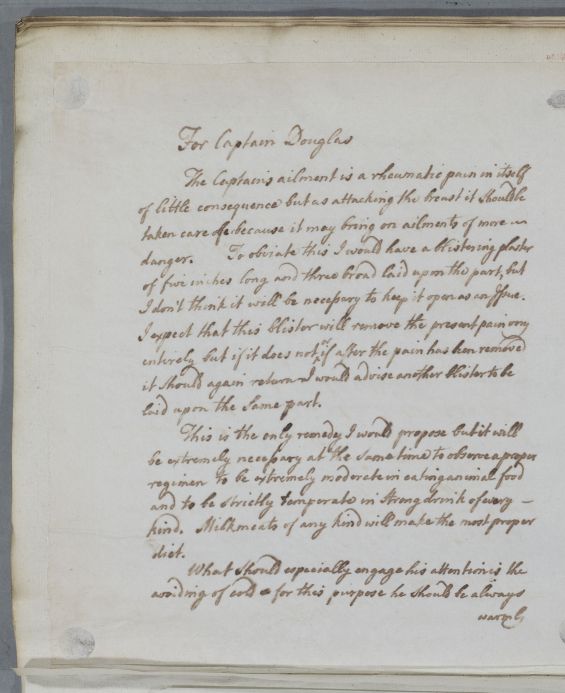 For Captain Douglas
The Captains ailment is a rheumatic pain in itself
of little consequence but as attacking the breast it should be
taken care of because it may bring on ailments of more
danger. To obviate this I would have a blistering plaster
of five inches long and three broad laid upon the part, but
I don't think it will be necessary to keep it open as an Issue.
I expect that this blister will remove the present pain very
entirely but if it does not or if after the pain has been removed
it should again return I would advise another blister to be
laid upon the same part.
This is the only remedy I would propose but it will
be extremely necessary at the same time to observe a proper
regimen to be extremely moderate in eating animal food
and to be strictly temperate in Strong drink of every
kind. Milkmeats of any kind will make the most proper
diet.
What should especially engage his attention is the
avoiding of cold & for this purpose he should be always
warmly